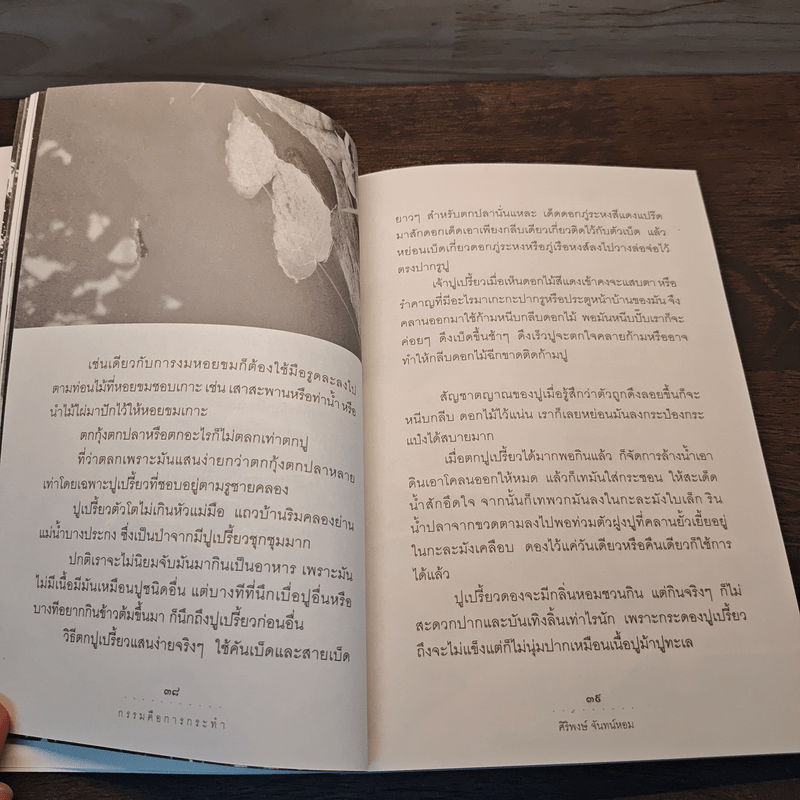 เช่นเดียวกับการงมหอยขมก็ต้องใช้มือรูดละลงไป
ตามท่อนไม้ที่หอยขมชอบเกาะ เช่น เสาสะพานหรือท่าน้ำ หรือ
นำไม้ไผ่มาปักไว้ให้หอยขมเกาะ
ตกกุ้งตกปลาหรือตกอะไรก็ไม่ตลกเท่าตกปู
ที่ว่าตลกเพราะมันแสนง่ายกว่าตกกุ้งตกปลาหลาย
เท่าโดยเฉพาะปูเปรี้ยวที่ชอบอยู่ตามรูชายคลอง
ปูเปรี้ยวตัวโตไม่เกินหัวแม่มือ แถวบ้านริมคลองย่าน
แม่น้ำบางปะกง ซึ่งเป็นป่าจากมีปูเปรี้ยวชุกชุมมาก
ปกติเราจะไม่นิยมจับมันมากินเป็นอาหาร เพราะมัน
ไม่มีเนื้อมีมันเหมือนปูชนิดอื่น แต่บางทีที่นึกเบื่อปูอื่นหรือ
บางทีอยากกินข้าวต้มขึ้นมา ก็นึกถึงปูเปรี้ยวก่อนอื่น
วิธีตกปูเปรี้ยวแสนง่ายจริงๆ ใช้คันเบ็ดและสายเบ็ด
๓๘
กรรมคือการกระทำ
ยาวๆ สำหรับตกปลานั่นแหละ เด็ดดอกภู่ระหงสีแดงแปร๊ด
มาสักดอกเด็ดเอาเพียงกลีบเดียวเกี่ยวติดไว้กับตัวเบ็ด แล้ว
หย่อนเบ็ดเกี่ยวดอกภู่ระหงหรือภู่เรือหงส์ลงไปวางล่อจ่อไว้
ตรงปากรูปู
เจ้าปูเปรี้ยวเมื่อเห็นดอกไม้สีแดงเข้าคงจะแสบตา หรือ
รำคาญที่มีอะไรมาเกะกะปากรูหรือประตูหน้าบ้านของมัน จึง
คลานออกมาใช้ก้ามหนีบกลีบดอกไม้ พอมันหนีบปั๊บเราก็จะ
ค่อยๆ ดึงเบ็ดขึ้นช้าๆ ดึงเร็วปูจะตกใจคลายก้ามหรืออาจ
ทำให้กลีบดอกไม้ฉีกขาดติดก้ามปู
สัญชาตญาณของปูเมื่อรู้สึกว่าตัวถูกดึงลอยขึ้นก็จะ
หนีบกลีบ ดอกไม้ไว้แน่น เราก็เลยหย่อนมันลงกระป๋องกระ
แป๋งได้สบายมาก
เมื่อตกปูเปรี้ยวได้มากพอกินแล้ว ก็จัดการล้างน้ำเอา
ดินเอาโคลนออกให้หมด แล้วก็เทมันใส่กระชอน ให้สะเด็ด
น้ำสักอึดใจ จากนั้นก็เทพวกมันลงในกะละมังใบเล็ก ริน
น้ำปลาจากขวดตามลงไปพอท่วมตัวฝูงปูที่คลานยั้วเยี้ยอยู่
ในกะละมังเคลือบ ดองไว้แค่วันเดียวหรือคืนเดียวก็ใช้การ
ได้แล้ว
ปูเปรี้ยวดองจะมีกลิ่นหอมชวนกิน แต่กินจริงๆ ก็ไม่
สะดวกปากและบันเทิงลิ้นเท่าไรนัก เพราะกระดองปูเปรี้ยว
ถึงจะไม่แข็งแต่ก็ไม่นุ่มปากเหมือนเนื้อปูม้าปูทะเล
๓๙
ศิริพงษ์ จันทน์หอม